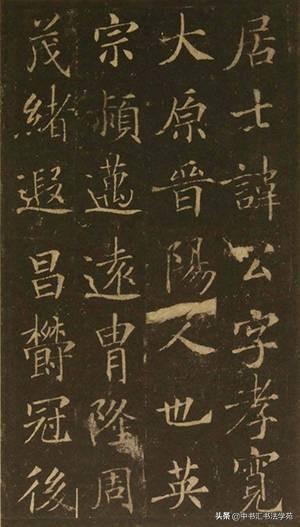 居士諱公字孝寬
大原晉陽人也英
宗穎邁遠胄隆周
茂緒遐昌欝冠後
头条 @中书汇书法学苑